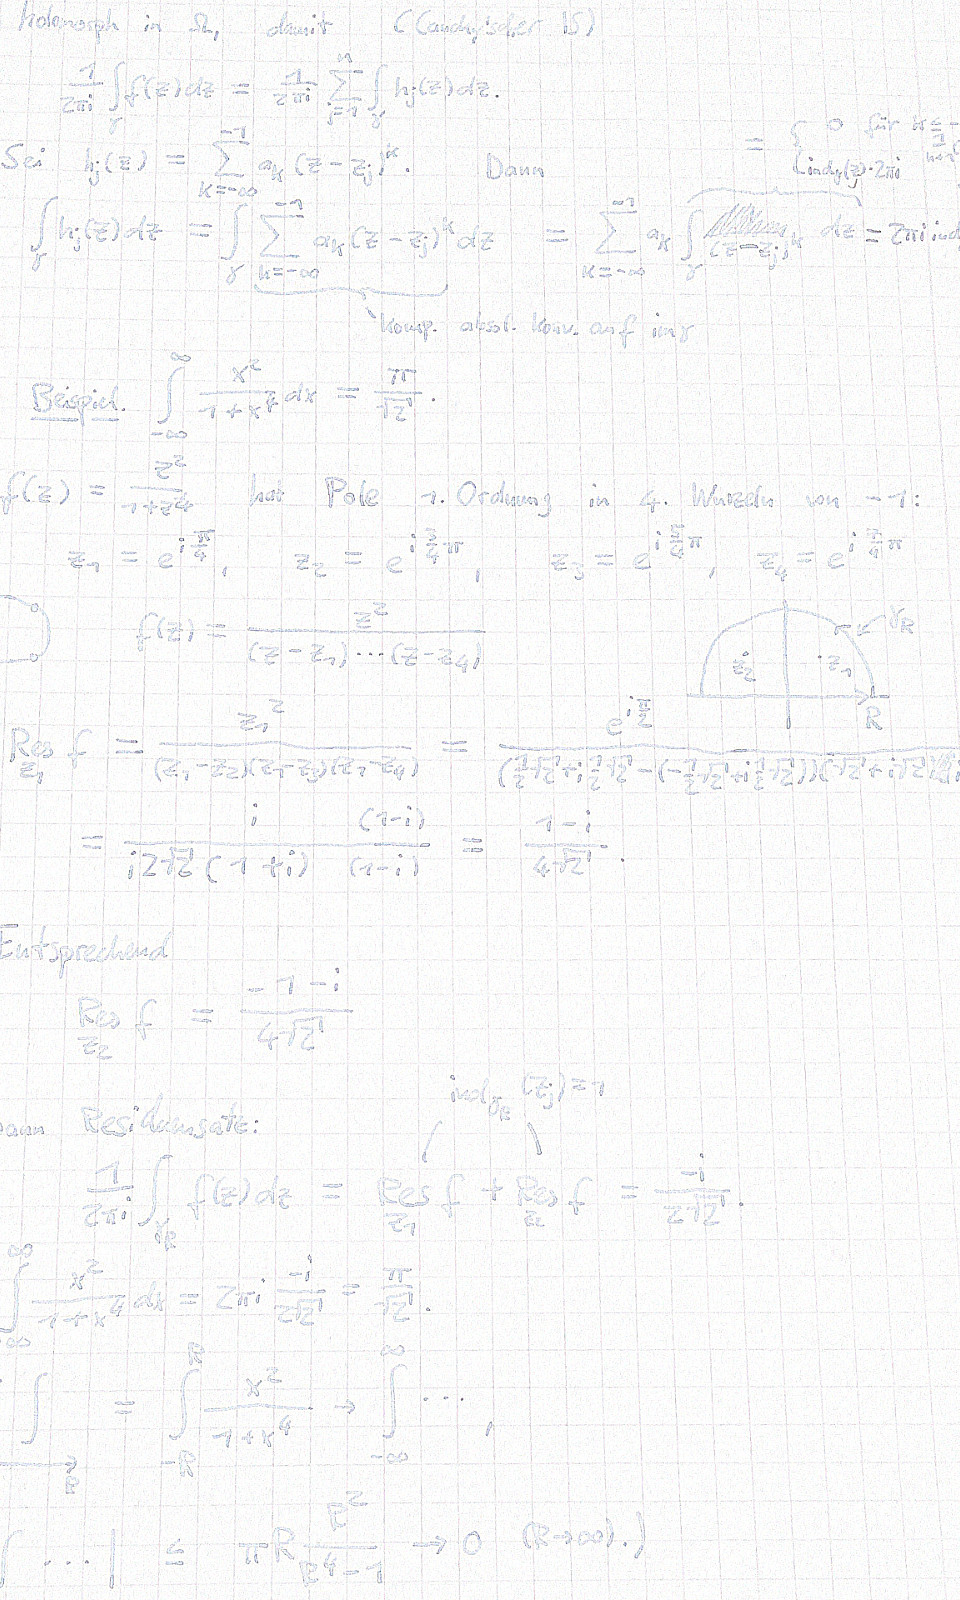 holomorph in Ω, damit (Cauchy'scher IS)
1/2πi ∫_γ f(z) dz = 1/2πi Σ_{j=1}^n ∫_γ h_j(z) dz.
= { 0 für k ≤ -
ind_γ(z_j)·2πi
Sei h_j(z) = Σ_{k=-∞}^{-1} a_k (z-z_j)^k. Dann
∫_γ h_j(z) dz = ∫_γ Σ_{k=-∞}^{-1} a_k (z-z_j)^k dz = Σ_{k=-∞}^{-1} a_k ∫_γ (z-z_j)^k dz = 2πi ind
komp. absol. konv. auf im γ
Beispiel. ∫_{-∞}^{∞} x²/(1+x⁴) dx = π/√2.
f(z) = z²/(1+z⁴) hat Pole 1. Ordnung in 4. Wurzeln von -1:
z_1 = e^{i π/4}, z_2 = e^{i 3/4 π}, z_3 = e^{i 5/4 π}, z_4 = e^{i 7/4 π}
f(z) = z²/((z-z_1)···(z-z_4))
γ_R
z_2 z_1
R
Res_{z_1} f = z_1²/((z_1-z_2)(z_1-z_3)(z_1-z_4)) = e^{i π/2}/((1/2 √2 + i 1/2 √2 - (-1/2 √2 + i 1/2 √2))(√2 + i√2)
= i (1-i)/(i2√2 (1+i) (1-i)) = (1-i)/(4√2).
Entsprechend
Res_{z_2} f = (-1-i)/(4√2)
ind_{γ_R}(z_j) = 1
ann Residuensatz:
1/2πi ∫_{γ_R} f(z) dz = Res_{z_1} f + Res_{z_2} f = -i/(2√2).
∫_{-∞}^{∞} x²/(1+x⁴) dx = 2πi -i/(2√2) = π/√2.
∫ = ∫_{-R}^{R} x²/(1+x⁴) → ∫_{-∞}^{∞} ...,
R
∫ ... | ≤ πR R²/(R⁴-1) → 0 (R→∞).)